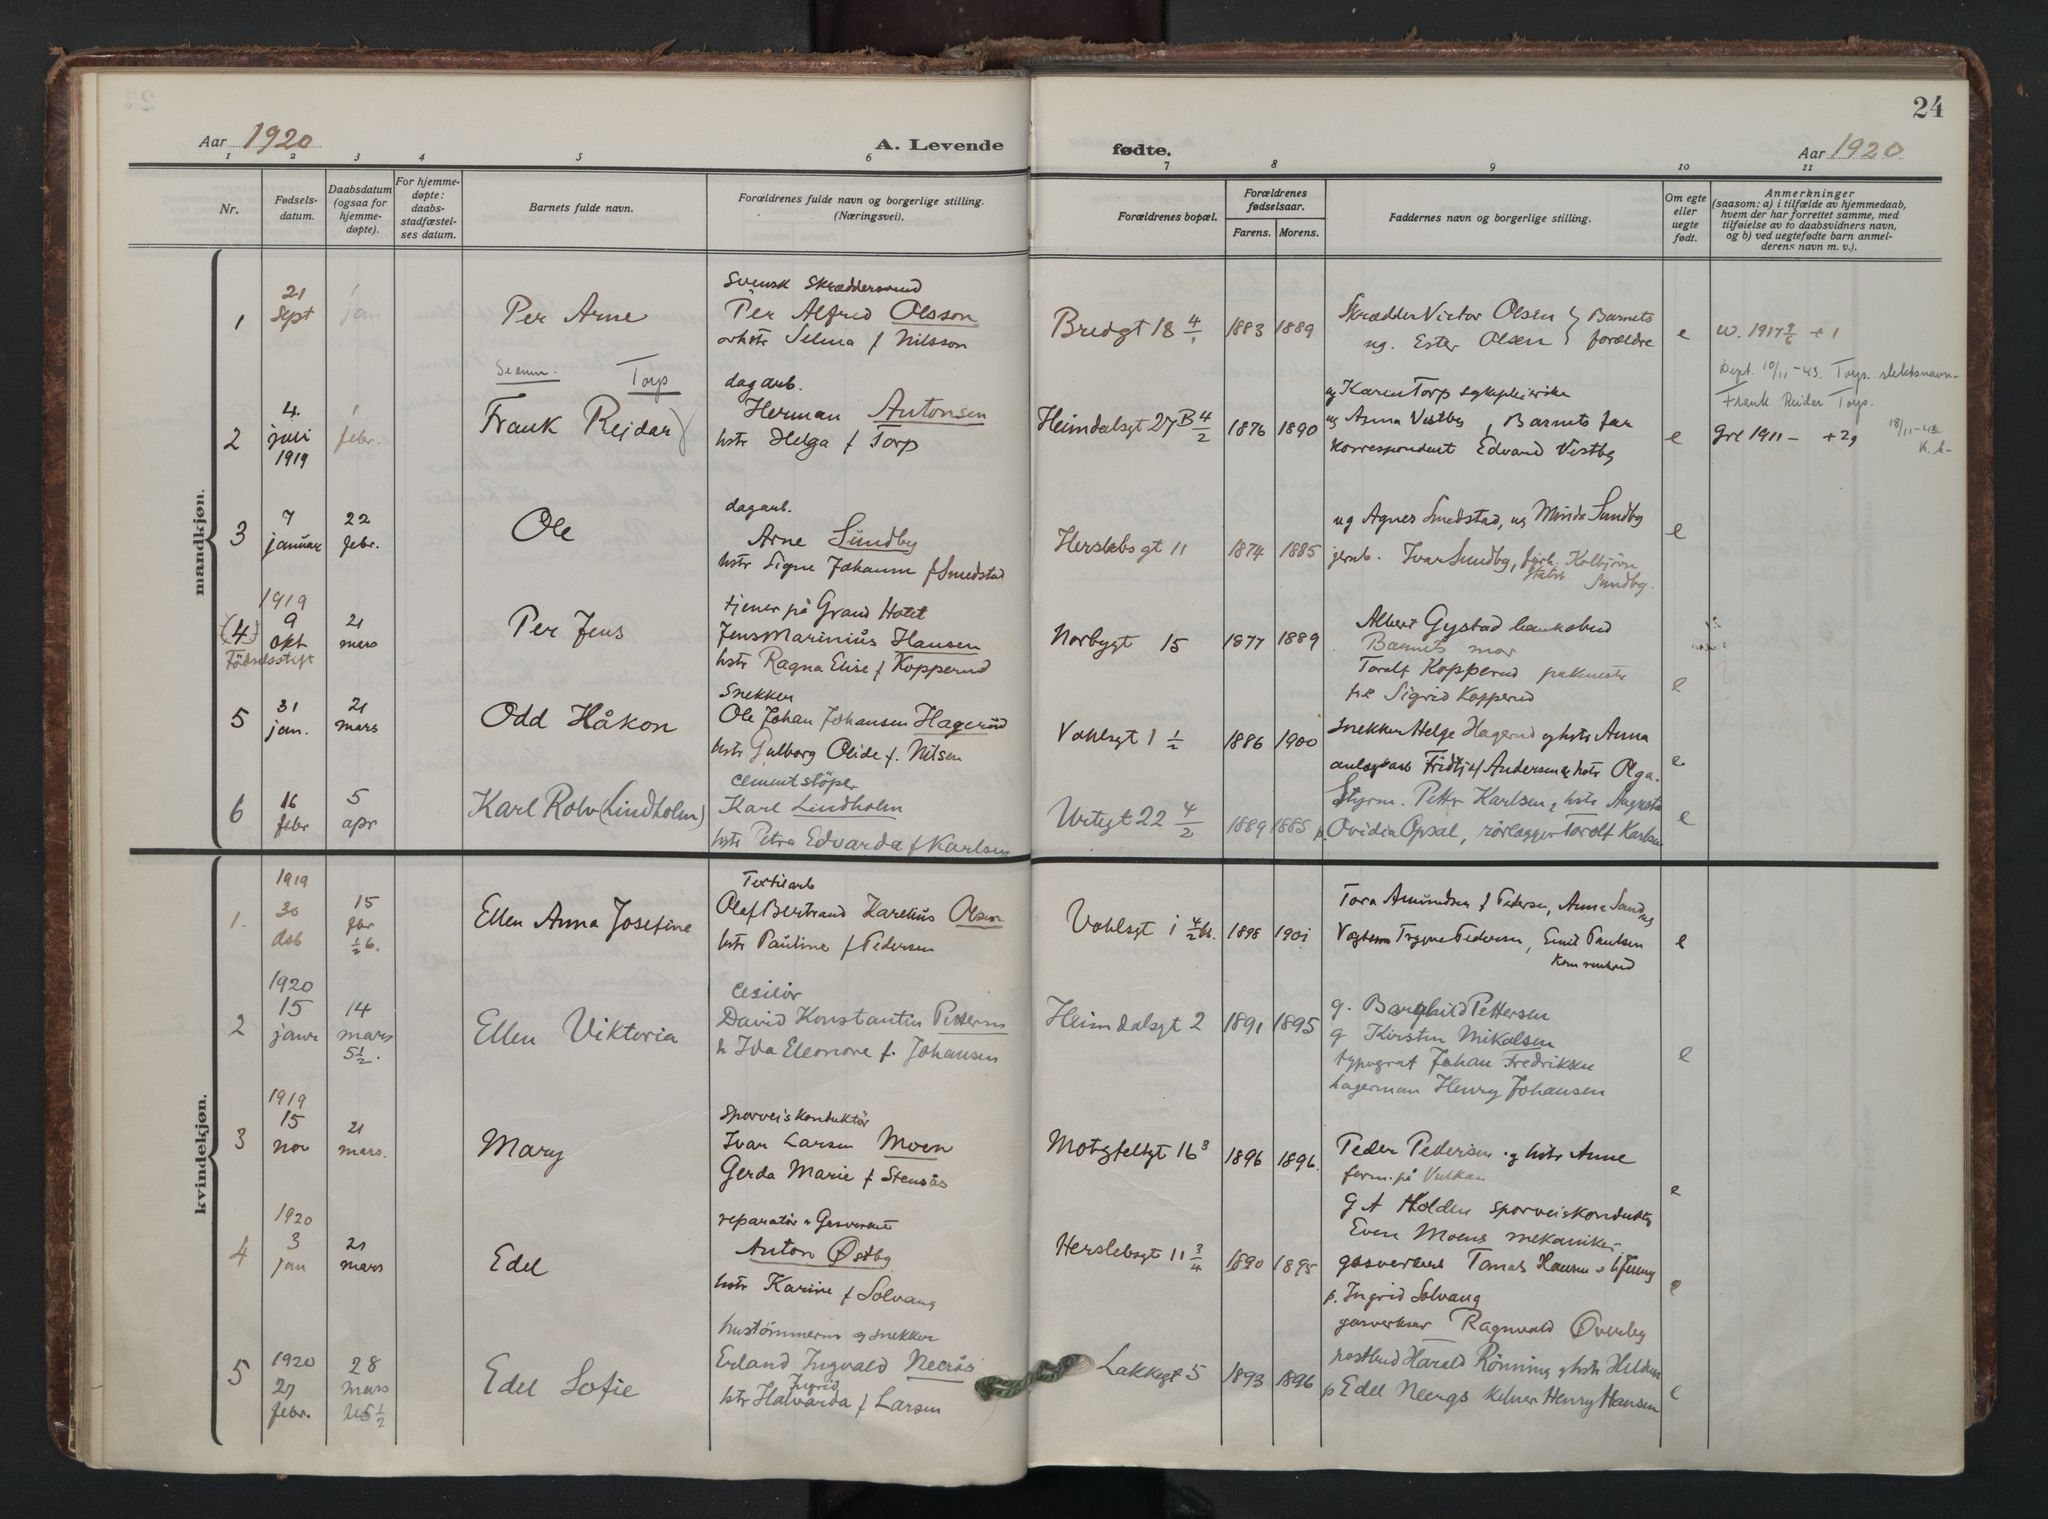 24
Aar 1920
A. Levende
fødte.
Aar 1920
1 2 3 4 5 6 7 8 9 10 11
Nr.
Fødsels-
datum.
Daabsdatum
(ogsaa for
hjemme-
døpte).
For hjemme-
døpte:
daabs-
stadfæstel-
ses datum.
Barnets fulde navn.
Forældrenes fulde navn og borgerlige stilling.
(Næringsvei).
Forældrenes bopæl.
Forældrenes
fødselsaar.
Farens. Morens.
Faddernes navn og borgerlige stilling.
Om egte
eller
uegte
født.
Anmerkninger
(saasom: a) i tilfælde av hjemmedaab,
hvem der har forrettet samme, med
tilføielse av to daabsvidners navn,
og b) ved uegtefødte barn anmel-
derens navn m. v.).
mandkjøn.
1
21
Sept
1
jan
Per Arne
Svensk Skræddersvend
Per Alfred Olsson
Selma f Nilsson
Bredgt 18 4/1
1883 1889
Skrædder Victor Olsen } Barnets
ug. Ester Olsen } forældre
e
+ 1
2
4.
juli
1919
1
febr.
Torp
Frank Reidar
dagarb.
Herman Antonsen
hstr Helga f Torp
Heimdalsgt 27 B 4/2
1876 1890
ug Karen Torp
ug Anna Vestby, Barnets far
korrespondent Edvard Vestby
e
Dept. 10/11-43. Torp. slektsnavn-
Frank Reidar Torp.
1911 - + 2g
3
7
januar
22
febr.
Ole
dagarb.
Arne Sundby
hstr Signe Johanne f Smedstad
Herslebsgt 11
1874 1885
ug Agnes Smedstad, ug Minda Sundby
Ivar Sundby, Kolbjörn
Sundby.
e
(4)
1919
9
okt
Födselsstift
21
mars
Per Jens
tjener på Grand Hotel
Jens Marinius Hansen
hstr Ragna Elise f Kopperud
Norbygt 15
1877 1889
Albert Gystad bankobud
Barnets mor
Toralf Kopperud
frk Sigrid Kopperud
e
5
31
jan.
21
mars
Odd Håkon
Snekker
Ole Johan Johansen Hagerud
hstr Gulborg Olide f. Nilsen
Vahlsgt 1 1/2
1886 1900
Snekker Helge Hagerud og hstr Anna
anlægsarb Fridtjof Andersen & hstr Olga.
e
6
16
febr
5
apr
Karl Rolv (Lindholm)
Cementstöper
Karl Lindholm
hstr Petra Edvarda f Karlsen
Urtegt 22 4/2
1889 1885
Styrm. Petter Karlsen, hstr Augusta
p. Ovidia Opsal, rörlægger Torolf Karlsen
e
kvindekjøn.
1.
1919
30
dsb
15
fbr
1/2 6.
Ellen Anna Josefine
Textilarb
Olaf Bertrand Karelius Olsen
hstr Pauline f Pedersen
Vahlsgt 1
1898 1901
Tora Amundsen f Pedersen, Anna
Trygve Pedersen, Emil Paulsen
e
2
1920
15
janr
14
mars
5 1/2.
Ellen Viktoria
Ciselör
David Konstantin Pettersen
h Ida Eleonore f. Johansen
Heimdalsgt 2
1891 1895
g. Borghild Pettersen
g Kirsten Mikalsen
typograf Johan Fredriksen
Lagerman Henry Johansen
e
3
1919
15
nov
21
mars.
Mary
Sporveiskonduktör
Ivar Larsen Moen
Gerda Marie f Stensås
Motzfeltgt 16 3
1896 1896.
Peder Pettersen og hstr Anne
form. på Vulkan
G A Holden sporveiskonduktör
Even Moens mekaniker
e
4
1920
3
jan
21
mars
Edel
reparatör v Gasverket
Anton Østby
hstr Karine f Solvang
Herslebsgt 11 3/4
1890 1895
gasverkset Tomas Hansen
p. Ingrid Solvang
gasverksar Ragnvald Øverby
e
5
1920
27
febr.
28
mars
5 1/2
Edel Sofie
hustömmerm og snekker
Erland Ingvald Neerås
Ingrid
hstr Halvarda f Larsen
Lakkegt 5
1893 1896
postbud Harald Rönning og hstr Hildur
p Edel Neergs kelner Henry Hansen
e